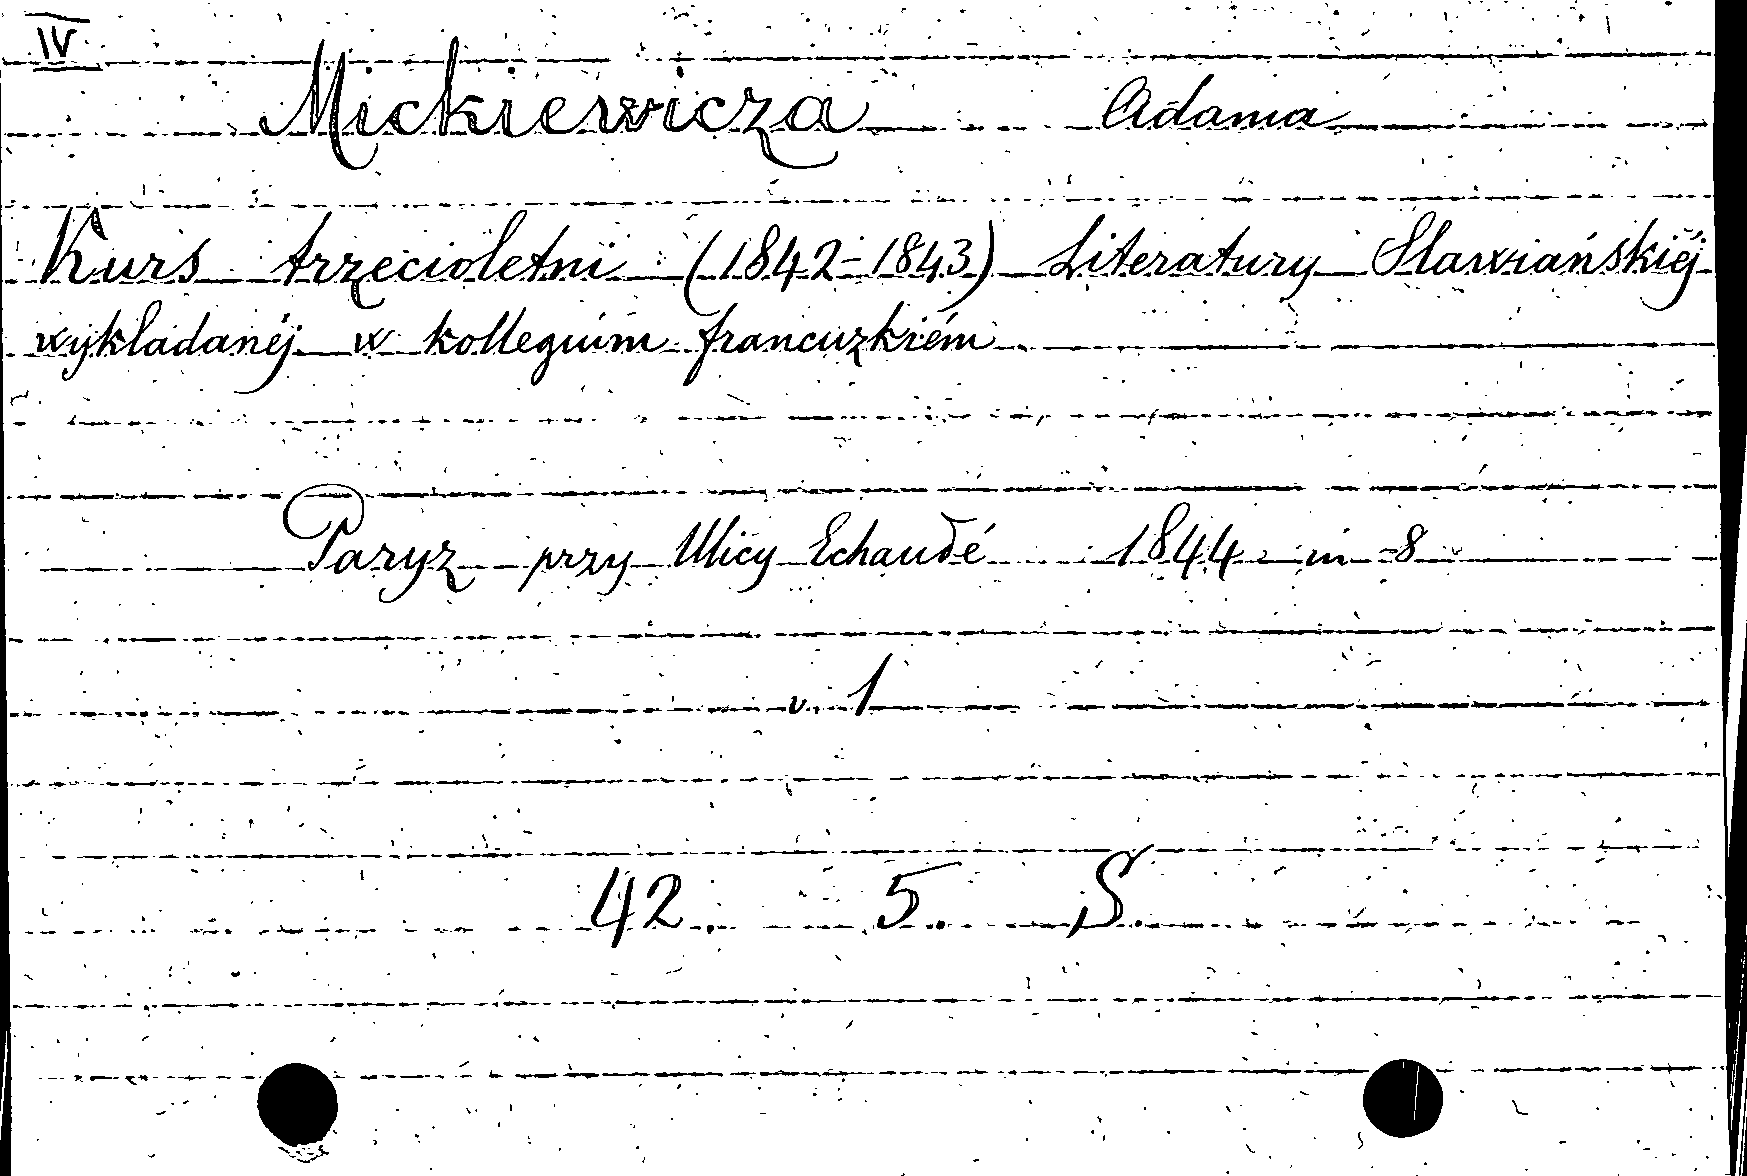 IV
Mickiewicza Adama
Kurs trzecioletni (1842-1843) Literatury Slawiańskiéj
wykladanéj w kollegium francuzkiém
Paryz przy Ulicy Echaudé 1844 in -8
v. 1
42. 5. S.